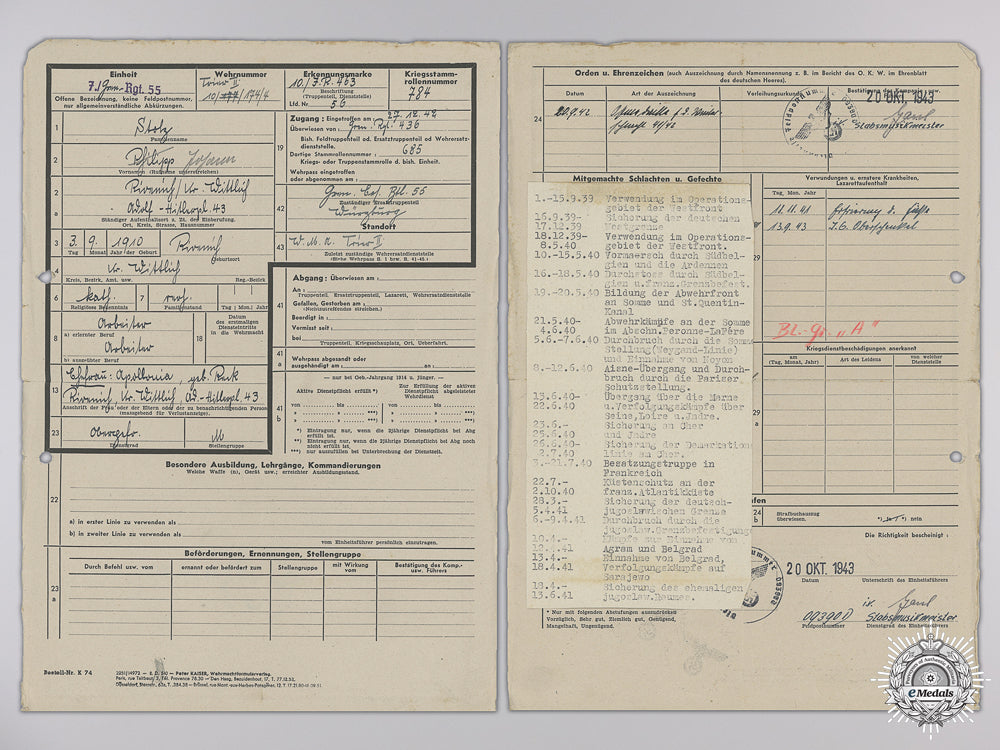 Einheit
7./Gren.-Rgt. 55
Offene Bezeichnung, keine Feldpostnummer,
nur allgemeinverständliche Abkürzungen.
Wehrnummer
Trier II
10/174/4
Erkennungsmarke
10./J.R. 463
Beschriftung
(Truppenteil, Dienststelle)
Lfd. Nr. 56
Kriegsstamm-
rollennummer
784
1
Stolz
Familienname
Philipp Johann
Vornamen (Rufname unterstreichen)
2
a
Rivenich/Kr. Wittlich
Adolf-Hitlerpl. 43
Ständiger Aufenthaltsort z. Zt. der Einberufung.
Ort, Kreis, Strasse, Hausnummer
3
3. 9. 1910 Rivenich
Tag Monat Jahr der Geburt Geburtsort
4
Kr. Wittlich
Kreis, Bezirk, Amt. usw. Reg.-Bezirk
6
kath.
Religiöses Bekenntnis
7
verh.
Familienstand
Tag Monat Jahr
8
Arbeiter
a) erlernter Beruf
Arbeiter
b) ausgeübter Beruf
18
Datum
des erstmaligen
Diensteintritts
in die
Wehrmacht
13
Ehefrau: Apollonia, geb. Reck
Rivenich, Kr. Wittlich, Ad.-Hitlerpl. 43
Anschrift der Frau oder der Eltern oder der zu benachrichtigenden Person
(massgebend für Verlustanzeige).
23
Obergefr.
Dienstgrad
M
Stellengruppe
19
Zugang: Eingetroffen am 27.12.42
Überwiesen von Gren. Rgt. 436
Bish. Feldtruppenteil od. Ersatztruppenteil od Wehrersatz-
dienststelle.
Dortige Stammrollennummer: 685
Kriegs- oder Truppenstammrolle d. bish. Einheit.
Wehrpass eingetroffen
oder abgenommen am
42
Gren. Ers. Btl. 55
Zuständiger Ersatztruppenteil
Würzburg
Standort
43
W. M. A. Trier II
Zuletzt zuständige Wehrersatzdienststelle
(Siehe Wehrpass S. 1 bzw. S. 41-45.)
41
Abgang: Überwiesen am
An
Truppenteil, Ersatztruppenteil, Lazarett, Wehrersatzdienststelle
Gefallen, Gestorben am
(Nichtzutreffendes streichen.)
Beerdigt in
Vermisst seit
bei
Truppenteil, Kriegsschauplatz, Ort, Ueberfall.
41
a
Wehrpass abgesandt oder
ausgehändigt am an
41
b
— nur bei Geb.-Jahrgang 1914 u. jünger. —
Aktive Dienstpflicht erfüllt *)
Zur Erfüllung der aktiven
Dienstpflicht angerechneter
Wehrdienst
von bis von bis
*) Eintragung nur, wenn die 2jährige Dienstpflicht bei Abg
erfüllt ist.
**) Eintragung nur, wenn die 2jährige Dienstpflicht bei Abg noch
nicht erfüllt ist.
***) nur auszufüllen bei Unterbrechung der Dienstzeit.
Besondere Ausbildung, Lehrgänge, Kommandierungen
Welche Waffe (n), Gerät usw.; erreichter Ausbildungsstand.
22
a) in erster Linie zu verwenden als
b) in zweiter Linie zu verwenden als
vom Einheitsführer persönlich einzutragen.
Beförderungen, Ernennungen, Stellengruppe
23
a
Durch Befehl usw. vom
ernannt oder befördert zum
Stellengruppe
mit Wirkung
vom
Bestätigung des Komp.-
usw. Führers
Bestell-Nr. K 74
Peter KAISER, Wehrmachtformularverlag.
Orden u. Ehrenzeichen (auch Auszeichnung durch Namensnennung z. B. im Bericht des O. K. W. im Ehrenblatt
des deutschen Heeres).
24
Datum
Art der Auszeichnung
Verleihungsurkunde
20 OKT. 1943
Stabsmusikmeister
Feldpostnumm
Mitgemachte Schlachten u. Gefechte
1.-15.9.39 Verwendung im Operations-
gebiet der Westfront
16.9.39- Sicherung der deutschen
17.12.39 Westgrenze
18.12.39- Verwendung im Operations-
8.5.40 gebiet der Westfront.
10.-15.5.40 Vormarsch durch Südbel-
gien und die Ardennen
16.-18.5.40 Durchstoss durch Südbel-
gien u.franz.Grenzbefest.
19.-20.5.40 Bildung der Abwehrfront
an Somme und St.Quentin-
Kanal
21.5.40- Abwehrkämpfe an der Somme
4.6.40 im Abschn.Peronne-LaFère
5.6.-7.6.40 Durchbruch durch die Somme
Stellung(Weygand-Linie)
und Einnahme von Noyon
8.-12.6.40 Aisne-Übergang und Durch-
bruch durch die Pariser
Schutzstellung.
13.6.40- Übergang über die Marne
22.6.40 u.Verfolgungskämpfe über
Seine,Loire u.Indre.
23.6.- Sicherung an Cher
25.6.40 und Indre
26.6.40- Sicherung der Demarkation
2.7.40 linie am Cher.
3.-21.7.40 Besatzungstruppe in
Frankreich
22.7.- Küstenschutz an der
2.10.40 franz.Atlantikküste
28.3.- Sicherung der deutsch-
5.4.41 jugoslawischen Grenze
6.-9.4.41 Durchbruch durch die
jugoslaw.Grenzbefestigung
10.4.- Kämpfe zur Einnahme von
12.4.41 Agram und Belgrad
13.4.- Einnahme von Belgrad,
18.4.41 Verfolgungskämpfe auf
Sarajewo
19.4.- Sicherung des ehemaligen
13.6.41 jugoslaw.Raumes.
Verwundungen u. ernstere Krankheiten,
Lazarettaufenthalt
Tag, Mon. Jahr
11.11.41 Erfrierung d. Füße
13.9.43 J.G. Oberschenkel
Bl.-Gr. "A"
Kriegsdienstbeschädigungen anerkannt
am
(Tag, Mon. Jahr)
Art des Leidens
von welcher
Dienststelle
29
24
b
Strafbuchauszug
überwiesen.
*) nein
Die Richtigkeit bescheinigt:
20 OKT. 1943
Datum
Unterschrift des Einheitsführers
09390D
Feldpostnummer
Stabsmusikmeister
Dienstgrad des Einheitsführers
* Nur mit folgenden Abstufungen ausdrücken
Vorzüglich, Sehr gut, Ziemlich gut, Genügend,
Mangelhaft, Ungenügend.
eMedals